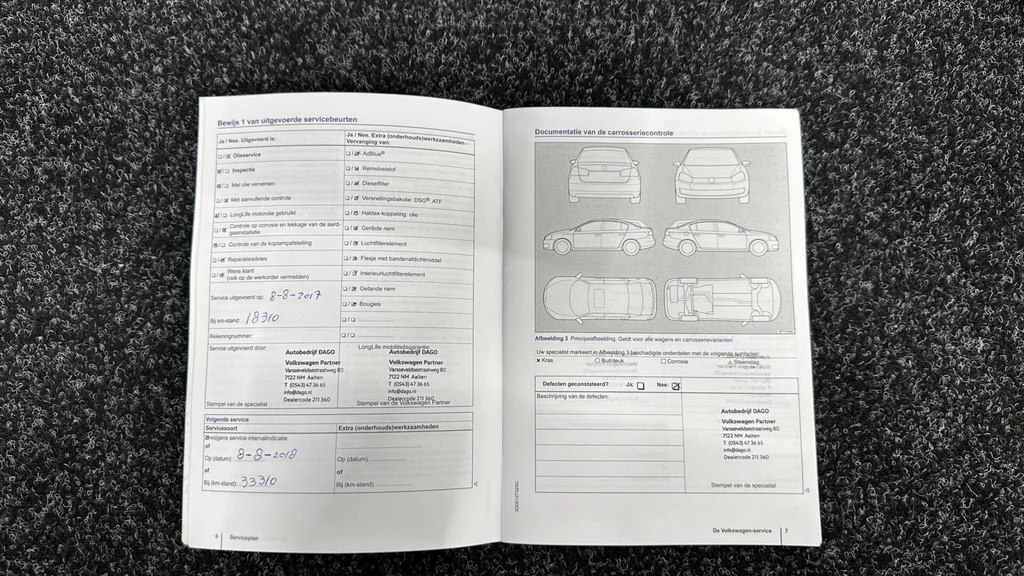 Bewijs 1 van uitgevoerde servicebeurten
Ja / Nee. Uitgevoerd is:
Olieservice
Inspectie
Met olie verversen
Met aanvullende controle
LongLife motorolie gebruikt
Controle op corrosie en lekkage van de aard-
gasinstallatie
Controle van de koplampafstelling
Reparatieadvies
Wens klant
(ook op de werkorder vermelden)
Service uitgevoerd op: 8-8-2017
Bij km-stand: 18310
Rekeningnummer:
Service uitgevoerd door:
Autobedrijf DAGO
Volkswagen Partner
Varsseveldsestraatweg 80
7122 NM Aalten
T (0543) 47 36 65
info@dago.nl
Dealercode 211 360
Stempel van de specialist
Ja / Nee. Extra (onderhouds)werkzaamheden -
Vervanging van:
AdBlue®
Remvloeistof
Dieselfilter
Versnellingsbakolie: DSG®, ATF
Haldex-koppeling: olie
Geribde riem
Luchtfilterelement
Flesje met bandenafdichtmiddel
Interieurluchtfilterelement
Getande riem
Bougies
LongLife mobiliteitsgarantie:
Autobedrijf DAGO
Volkswagen Partner
Varsseveldsestraatweg 80
7122 NM Aalten
T (0543) 47 36 65
info@dago.nl
Dealercode 211 360
Stempel van de Volkswagen Partner
Volgende service
Servicesoort
volgens service-intervalindicatie
of
Op (datum): 8-8-2018
of
Bij (km-stand): 33310
Extra (onderhouds)werkzaamheden
Op (datum):
of
Bij (km-stand):
6 Serviceplan
Documentatie van de carrosseriecontrole
Afbeelding 3 Principeafbeelding. Geldt voor alle wagens en carrosserievarianten
Uw specialist markeert in Afbeelding 3 beschadigde onderdelen met de volgende symbolen:
x Kras O Buil/deuk □ Corrosie △ Steenslag
Defecten geconstateerd? Ja: Nee:
Beschrijving van de defecten:
Autobedrijf DAGO
Volkswagen Partner
Varsseveldsestraatweg 80
7122 NM Aalten
T (0543) 47 36 65
info@dago.nl
Dealercode 211 360
Stempel van de specialist
De Volkswagen-service 7